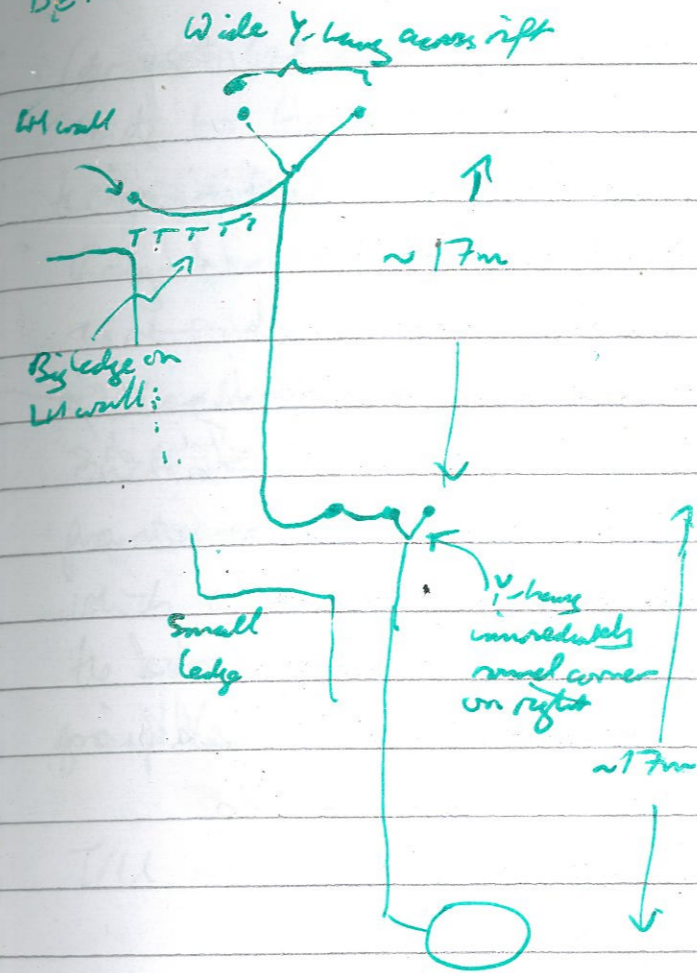 Wide Y-hang across rift
LH wall
~ 17m
Big ledge on
LH wall
Small
ledge
Y-hang
immediately
round corner
on right
~17m